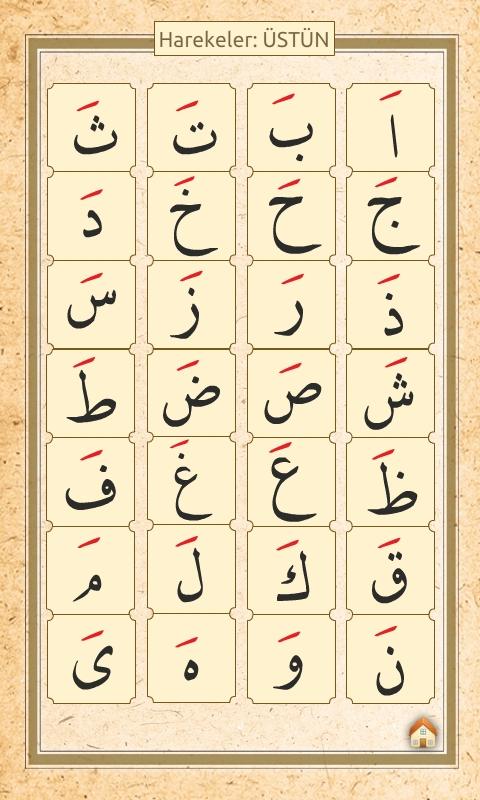 Harekeler: ÜSTÜN
اَ بَ تَ ثَ
جَ حَ خَ دَ
ذَ رَ زَ سَ
شَ صَ ضَ طَ
ظَ عَ غَ فَ
قَ كَ لَ مَ
نَ وَ هَ ىَ